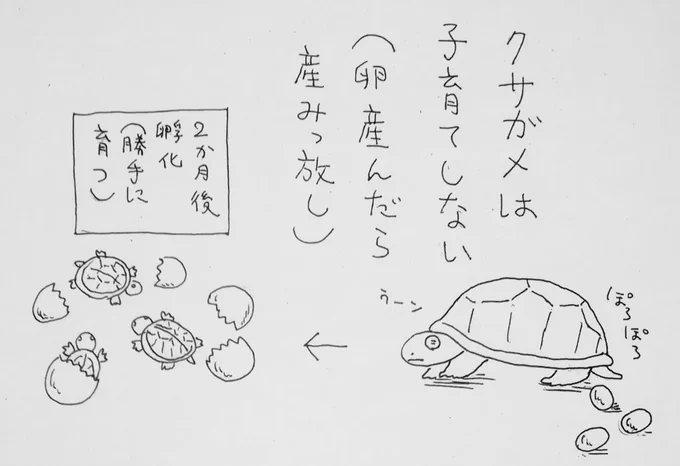 クサガメは
子育てしない
（卵産んだら
産みっ放し）
2か月後
孵化
（勝手に
育つ）
うーン
ぽろ
ぽろ